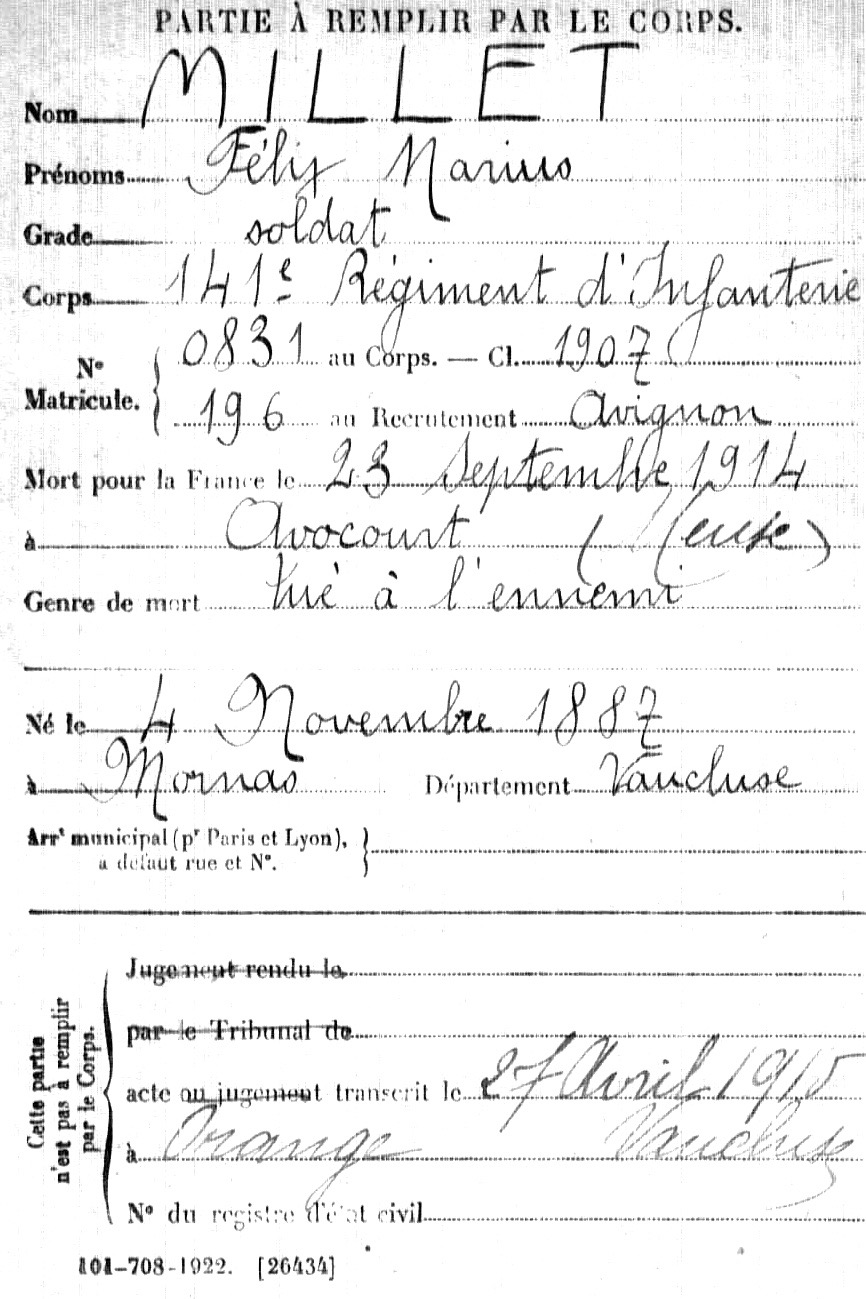 PARTIE À REMPLIR PAR LE CORPS.
Nom MILLET
Prénoms Félix Marius
Grade soldat
Corps 141e Régiment d'Infanterie
N° Matricule. { 0831 au Corps. — Cl. 1907
196 au Recrutement Avignon
Mort pour la France le 23 Septembre 1914
à Avocourt (Meuse)
Genre de mort tué à l'ennemi
Né le 4 Novembre 1887
à Mornas Département Vaucluse
Arrt municipal (pr Paris et Lyon), }
à défaut rue et N°.
Cette partie n'est pas à remplir par le Corps.
Jugement rendu le
par le Tribunal de
acte ou jugement transcrit le 27 Avril 1915
à Orange Vaucluse
N° du registre d'état civil
101-708-1922. [26434]